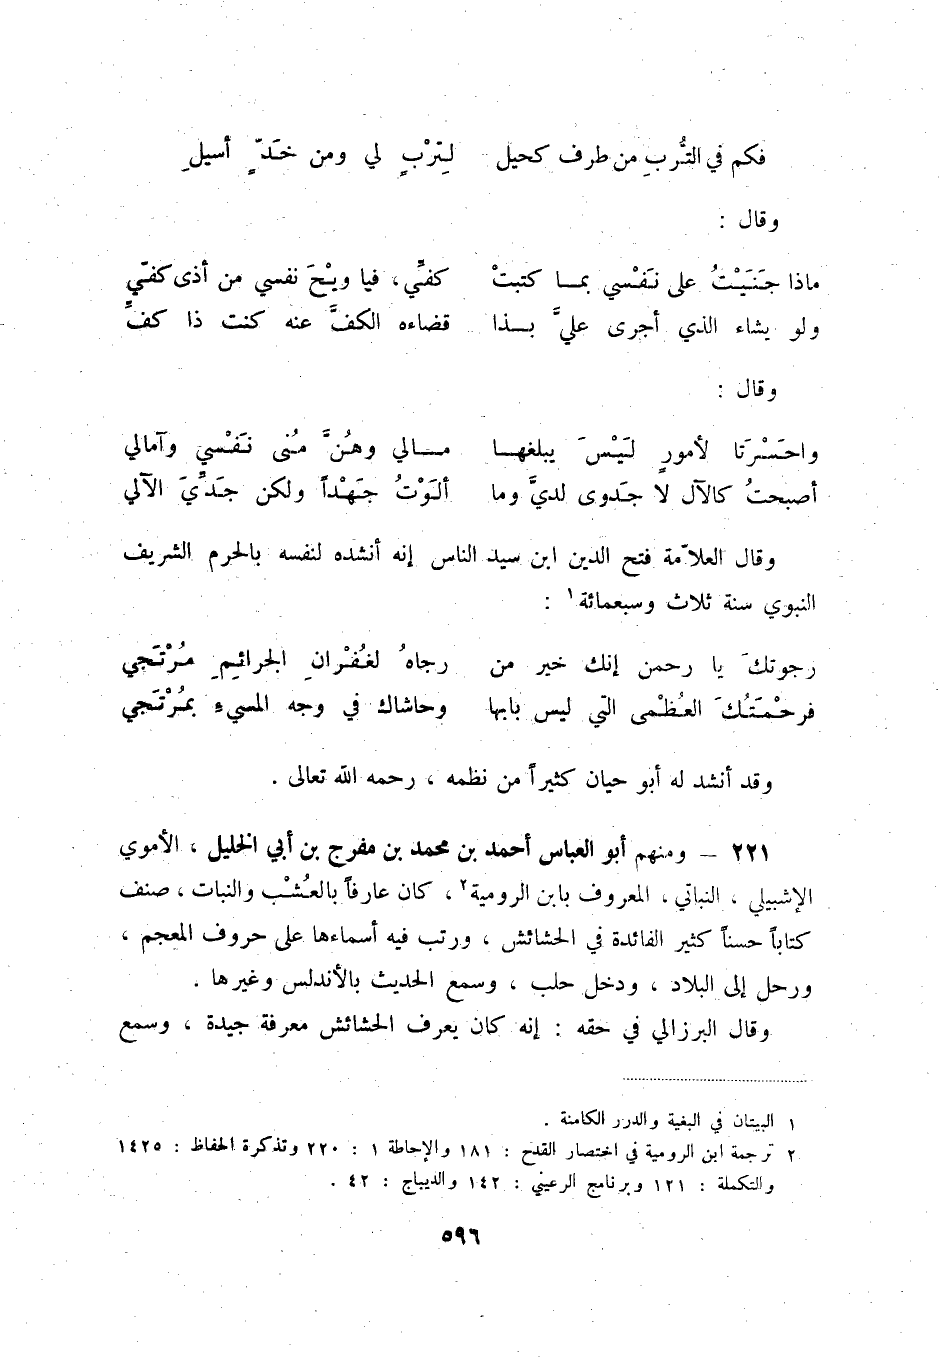 فكم في التُّربِ من طرف كحيل لِتِرْبٍ لي ومن خَدٍّ أسيلِ
وقال :
ماذا جَنَيْتُ على نَفْسي بما كتبتْ كفّي ، فيا ويْحَ نفسي من أذى كفّي
ولو يشاء الذي أجرى عليَّ بذا قضاءه الكفَّ عنه كنت ذا كفِّ
وقال :
واحَسْرَتا لأمورٍ لَيْسَ يبلغها مالي وهُنَّ مُنى نَفْسي وآمالي
أصبحتُ كالآل لا جَدوى لديَّ وما ألَوْتُ جَهْداً ولكن جَدِّيَ الآلي
وقال العلاّمة فتح الدين ابن سيد الناس إنه أنشده لنفسه بالحرم الشريف
النبوي سنة ثلاث وسبعمائة١ :
رجوتكَ يا رحمن إنك خير من رجاهُ لغُفْرانِ الجرائِمِ مُرْتَجي
فرحْمَتُكَ العُظْمى التي ليس بابها وحاشاك في وجه المسيءِ بمُرْتَجي
وقد أنشد له أبو حيان كثيراً من نظمه ، رحمه الله تعالى .
٢٢١ – ومنهم أبو العباس أحمد بن محمد بن مفرج بن أبي الخليل ، الأموي
الإشبيلي ، النباتي ، المعروف بابن الرومية٢ ، كان عارفاً بالعُشْب والنبات ، صنف
كتاباً حسناً كثير الفائدة في الحشائش ، ورتب فيه أسماءها على حروف المعجم ،
ورحل إلى البلاد ، ودخل حلب ، وسمع الحديث بالأندلس وغيرها .
وقال البرزالي في حقه : إنه كان يعرف الحشائش معرفة جيدة ، وسمع
١ البيتان في البغية والدرر الكامنة .
٢ ترجمة ابن الرومية في اختصار القدح : ١٨١ والإحاطة ١ : ٢٢٠ وتذكرة الحفاظ : ١٤٢٥
والتكملة : ١٢١ وبرنامج الرعيني : ١٤٢ والديباج : ٤٢ .
٥٩٦